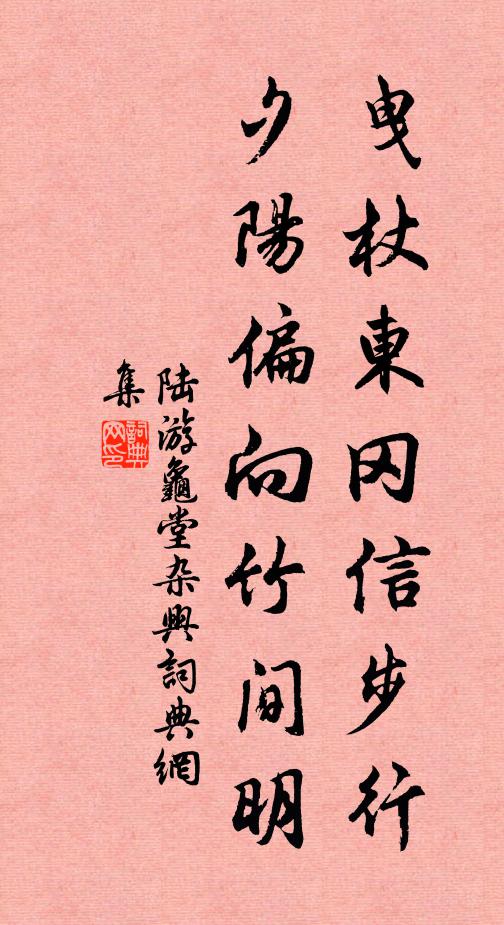 曳杖東冈信步行
夕陽偏向竹間明
陆游龜堂杂興詞典網
集
詞典
网印